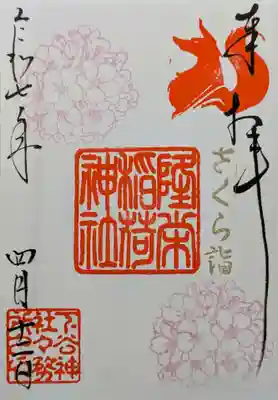 奉拝
さくら詣
隆栄
稲荷
神社
令和七年
四月十二日
下谷神
社々務